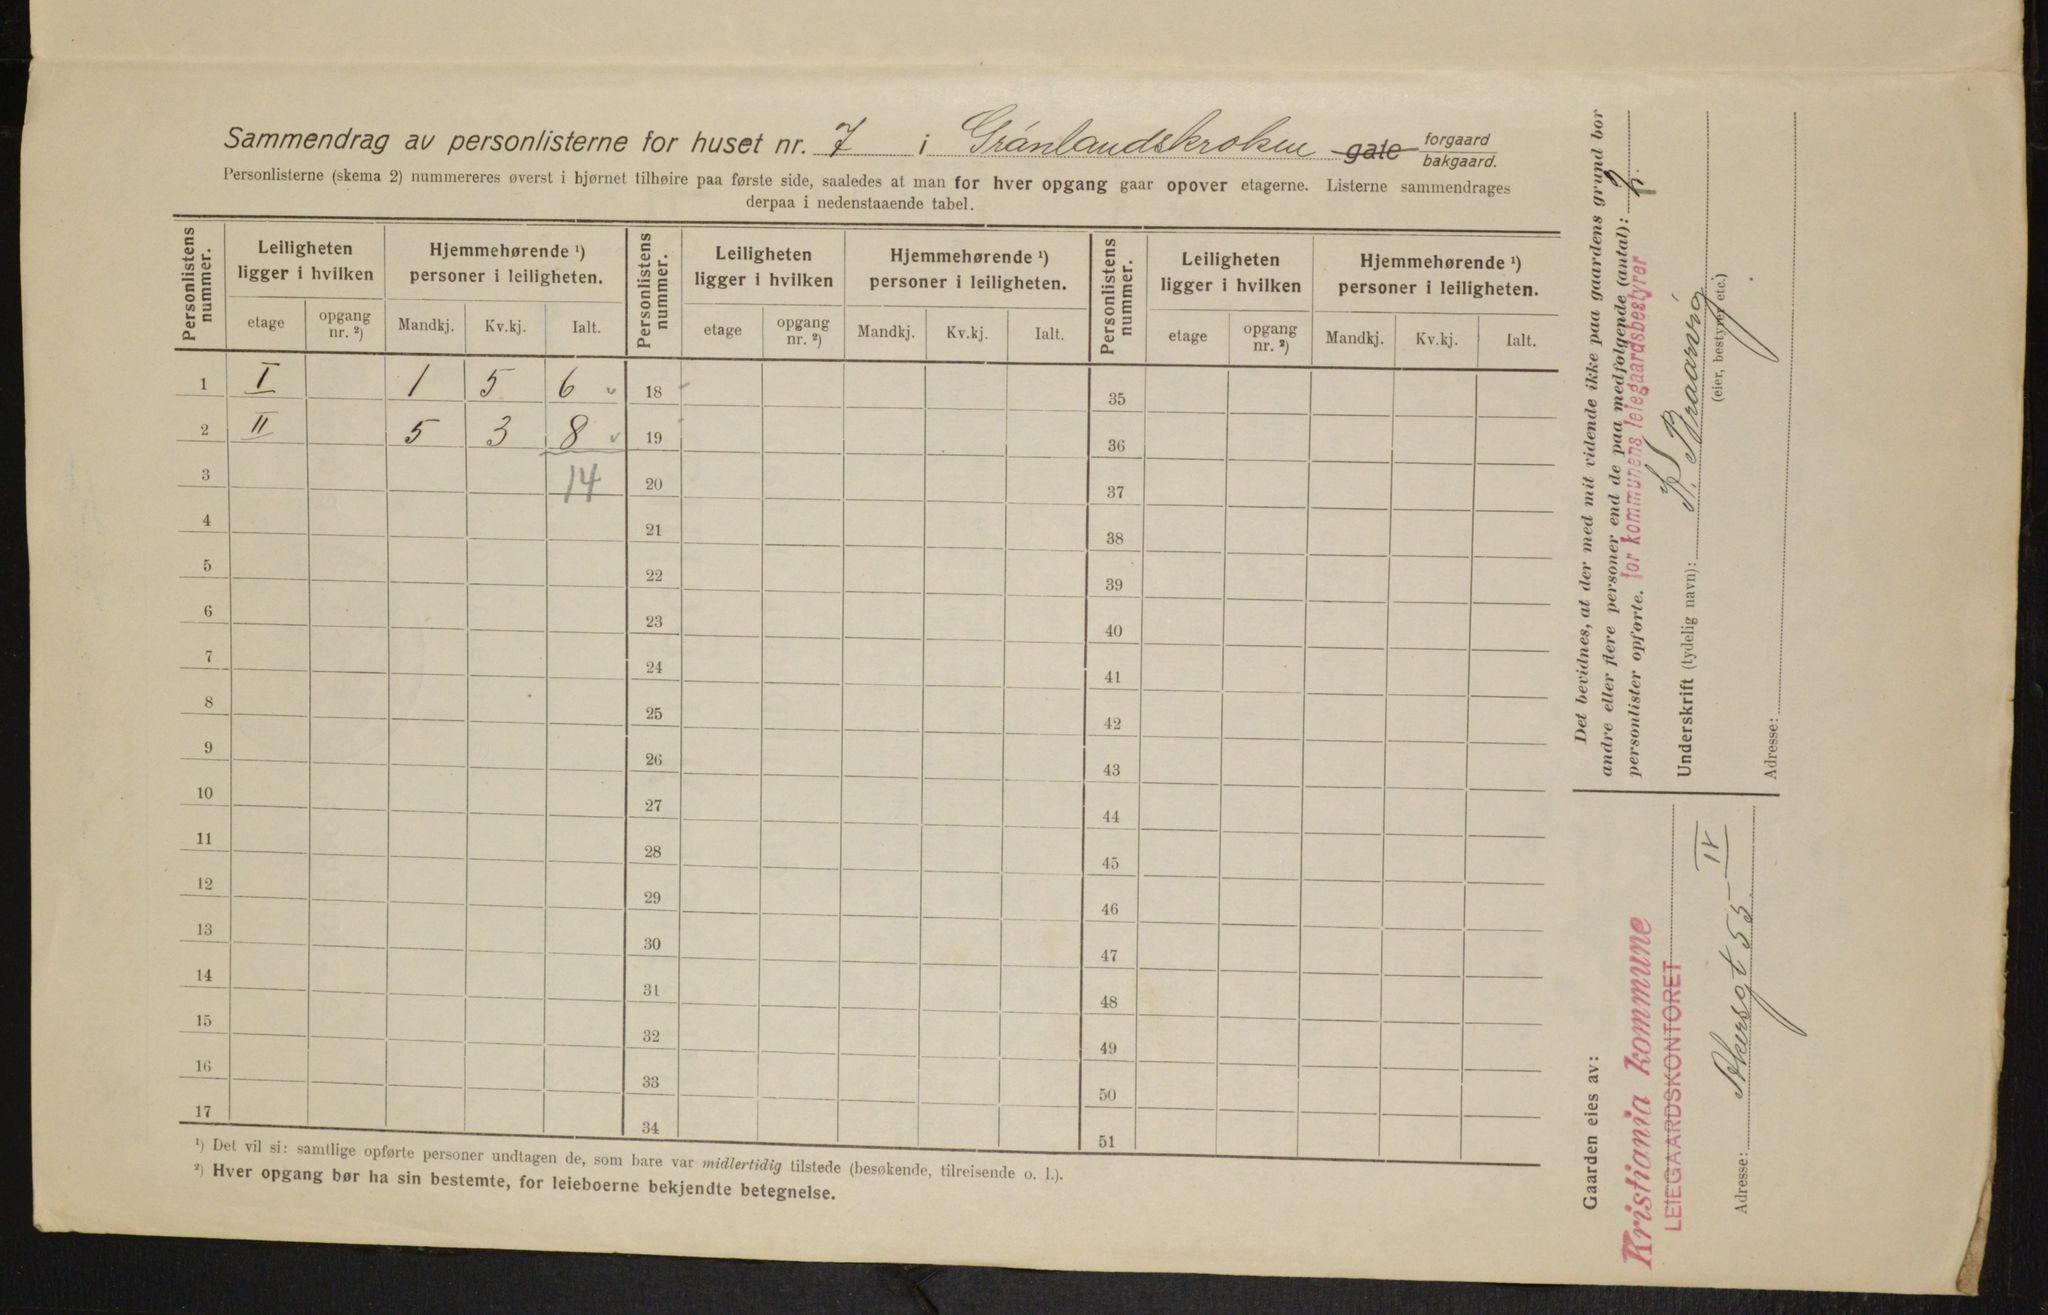 Sammendrag av personlisterne for huset nr. 7 i Grønlandskroken gate forgaard bakgaard.
Personlisterne (skema 2) nummereres øverst i hjørnet tilhøire paa første side, saaledes at man for hver opgang gaar opover etagerne. Listerne sammendrages
derpaa i nedenstaaende tabel.
Personlistens nummer. Leiligheten ligger i hvilken Hjemmehørende ¹) personer i leiligheten. Personlistens nummer. Leiligheten ligger i hvilken Hjemmehørende ¹) personer i leiligheten. Personlistens nummer. Leiligheten ligger i hvilken Hjemmehørende ¹) personer i leiligheten.
etage opgang nr. ²) Mandkj. Kv.kj. Ialt. etage opgang nr. ²) Mandkj. Kv.kj. Ialt. etage opgang nr. ²) Mandkj. Kv.kj. Ialt.
1 I 1 5 6 18 35
2 II 5 3 8 19 36
3 14 20 37
4 21 38
5 22 39
6 23 40
7 24 41
8 25 42
9 26 43
10 27 44
11 28 45
12 29 46
13 30 47
14 31 48
15 32 49
16 33 50
17 34 51
¹) Det vil si: samtlige opførte personer undtagen de, som bare var midlertidig tilstede (besøkende, tilreisende o. l.).
²) Hver opgang bør ha sin bestemte, for leieboerne bekjendte betegnelse.
Det bevidnes, at der med mit vidende ikke paa gaardens grund bor
andre eller flere personer end de paa medfølgende (antal): 2
personlister opførte. for kommunens leiegaardsbestyrer
Underskrift (tydelig navn):
(eier, bestyrer etc.)
Adresse:
Gaarden eies av:
Kristiania kommune
LEIEGAARDSKONTORET
Adresse: Akersgt 55 IV